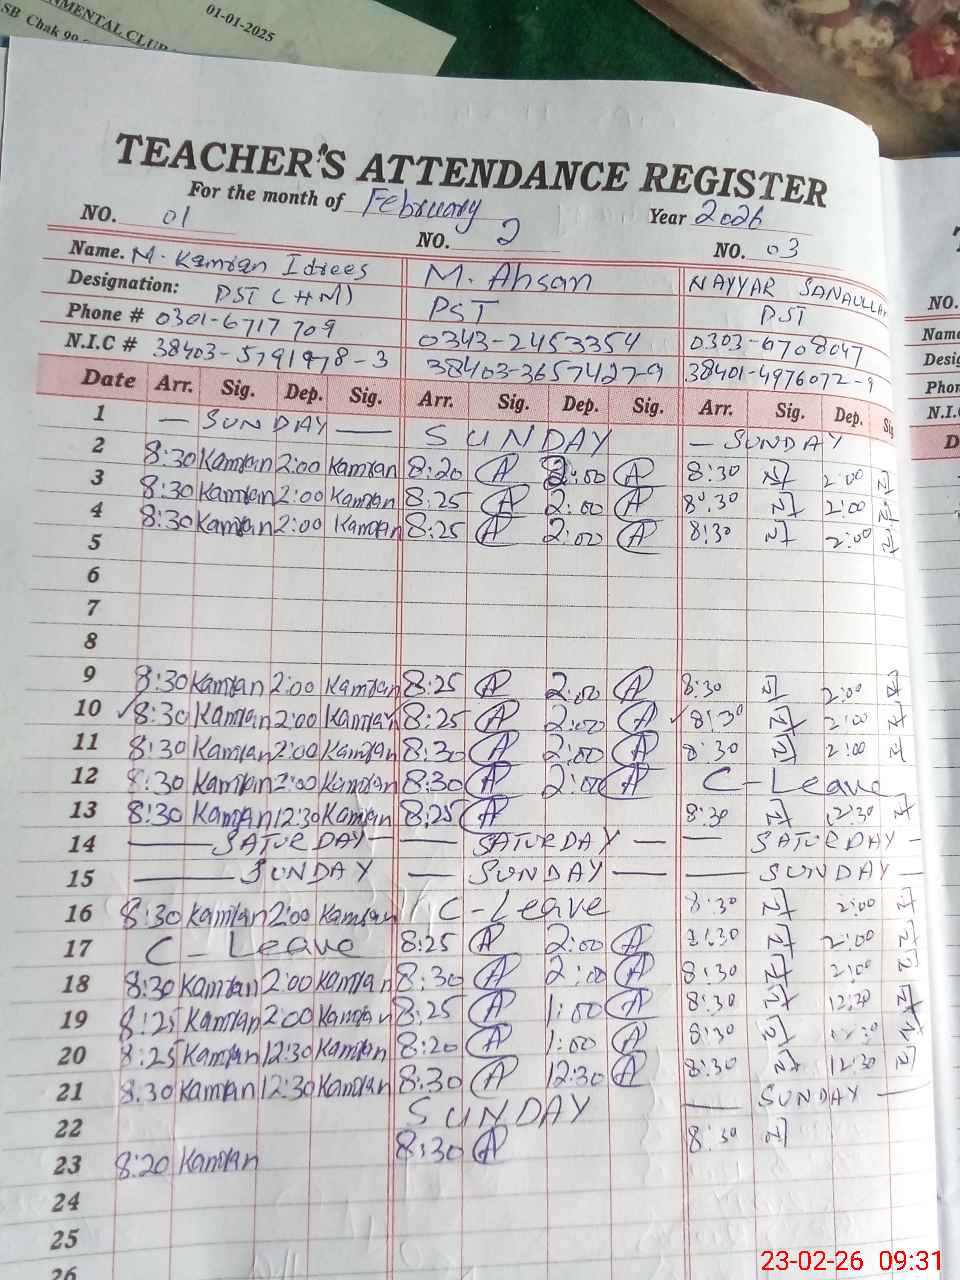 NMENTAL CLUB
SB Chak 90
01-01-2025
TEACHER'S ATTENDANCE REGISTER
For the month of February Year 2026
NO. 01 NO. 2 NO. 03
Name. M. Kamran Idrees M. Ahsan NAYYAR SANAULLAH
Designation: PST (HM) PST PST
Phone # 0301-6717709 0343-2453354 0303-6708047
N.I.C # 38403-5791978-3 38403-3657427-9 38401-4976072-9
Date Arr. Sig. Dep. Sig. Arr. Sig. Dep. Sig. Arr. Sig. Dep. Sig
1 — SUNDAY — SUNDAY — SUNDAY
2 8:30 Kamran 2:00 Kamran 8:20 A 2:00 A 8:30 2:00
3 8:30 Kamran 2:00 Kamran 8:25 A 2:00 A 8:30 2:00
4 8:30 Kamran 2:00 Kamran 8:25 A 2:00 A 8:30 2:00
5
6
7
8
9 8:30 Kamran 2:00 Kamran 8:25 A 2:00 A 8:30 2:00
10 8:30 Kamran 2:00 Kamran 8:25 A 2:00 A 8:30 2:00
11 8:30 Kamran 2:00 Kamran 8:30 A 2:00 A 8:30 2:00
12 8:30 Kamran 2:00 Kamran 8:30 A 2:00 A C-Leave
13 8:30 Kamran 12:30 Kamran 8:25 A 8:30 12:30
14 — SATURDAY — SATURDAY — — SATURDAY -
15 — SUNDAY — SUNDAY — — SUNDAY —
16 8:30 Kamran 2:00 Kamran C-Leave 8:30 2:00
17 C-Leave 8:25 A 2:00 A 8:30 2:00
18 8:30 Kamran 2:00 Kamran 8:30 A 2:00 A 8:30 2:00
19 8:25 Kamran 2:00 Kamran 8:25 A 1:00 A 8:30
20 8:25 Kamran 12:30 Kamran 8:20 A 1:00 A 8:30
21 8:30 Kamran 12:30 Kamran 8:30 A 12:30 A 8:30 12:30
22 SUNDAY — SUNDAY —
23 8:20 Kamran 8:30 A 8:30
24
25
26
NO.
Name
Desig
Phon
N.I.
D
23-02-26 09:31